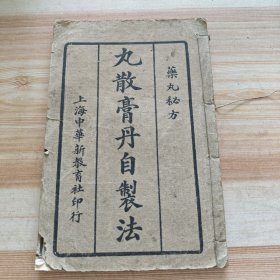 藥丸秘方
丸散膏丹自製法
上海中華新教育社印行